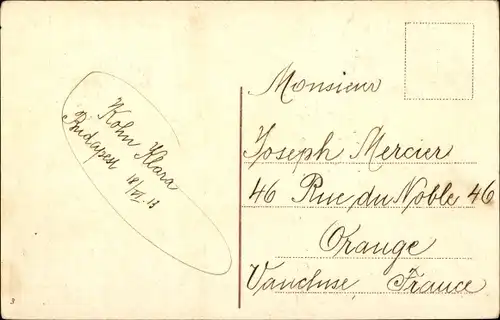 Kohn Klara
Budapest
18/VI. 13
Monsieur
Joseph Mercier
46 Rue du Noble 46
Orange
Vancluse, France
3